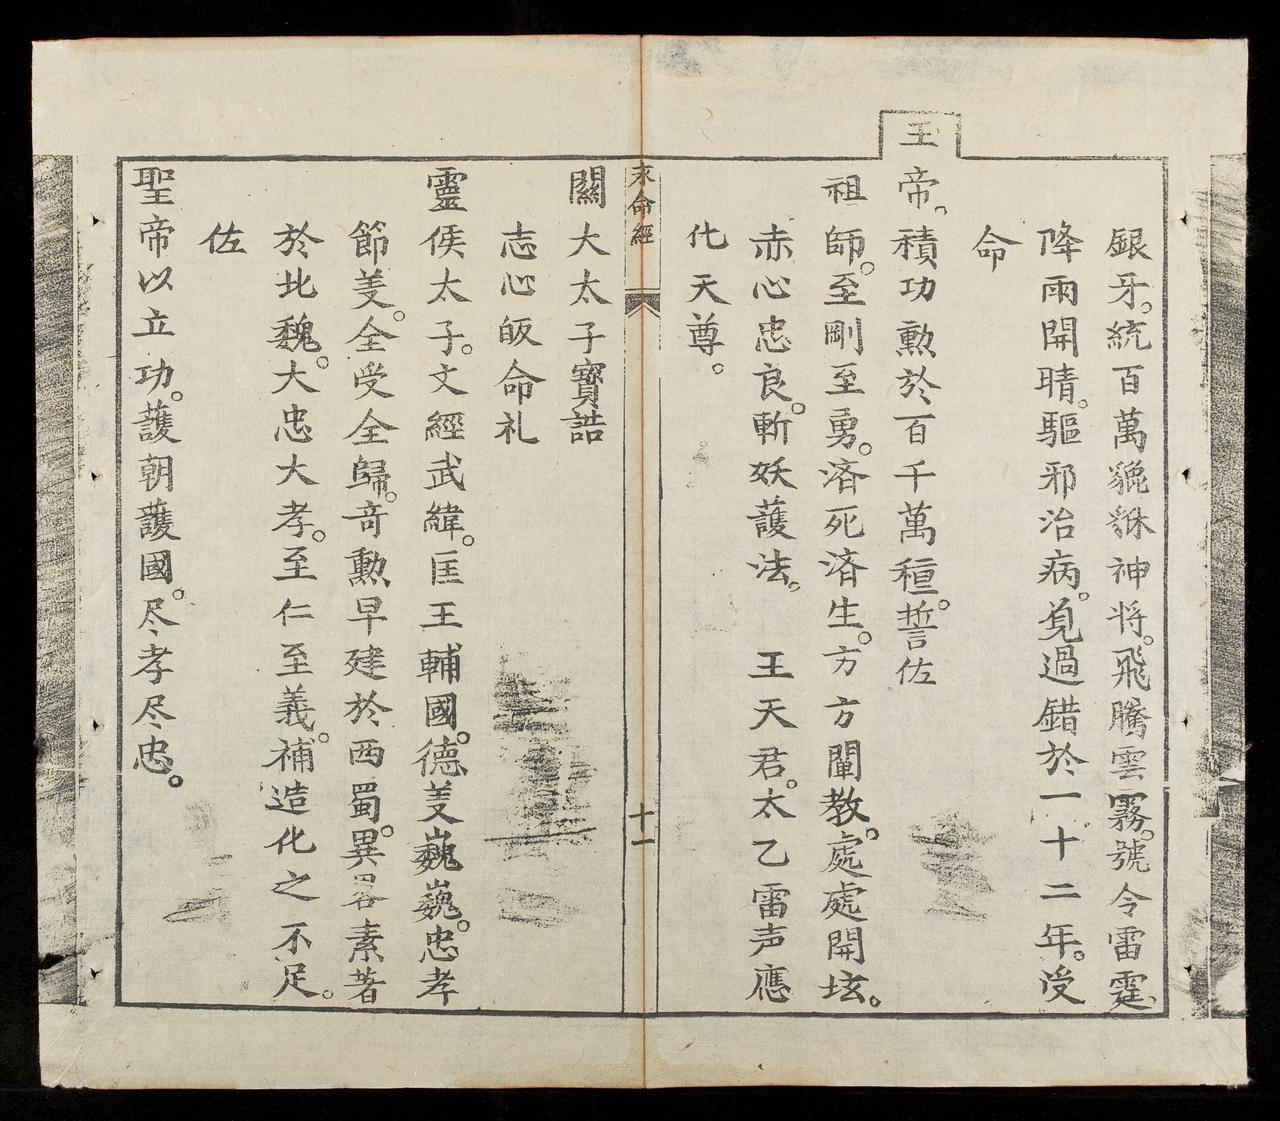 銀牙。統百萬貔貅神將。飛騰雲霧。號令雷霆、
降雨開晴。驅邪治病。覓過錯於一十二年。受
命
玉帝。積功勲於百千萬種。誓佐
祖師。至剛至勇。済死済生。方方闡教。處處開坛。
赤心忠良。斬妖護法。王天君。太乙雷声應
化天尊。
永命經
十一
關大太子寶誥
志心皈命礼
靈侯太子。文經武緯。匡王輔國。德𦍌巍巍。忠孝
節𦍌。全受全歸。竒勲早建於西蜀。異畧素著
於北魏。大忠大孝。至仁至義。補造化之不足。
佐
聖帝以立功。護朝護國。尽孝尽忠。